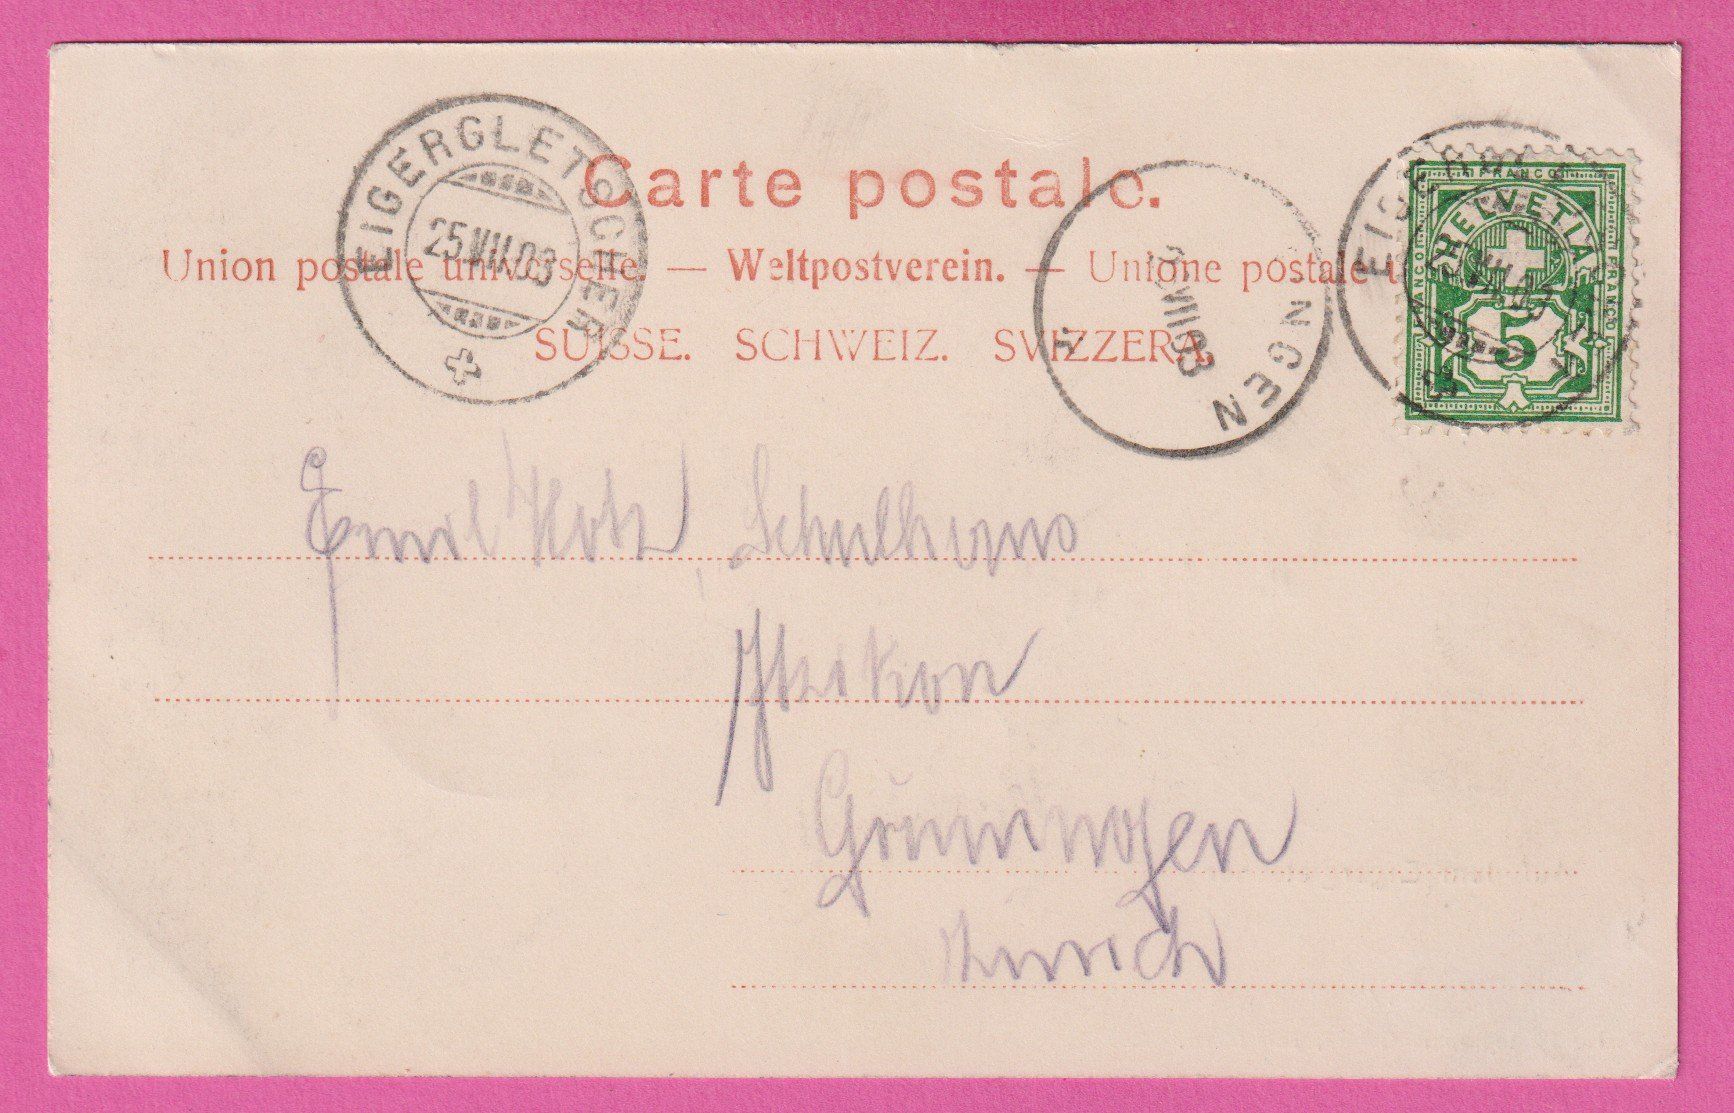 EIGERGLETSCHER
25.VII.03
Carte postale.
Union postale universelle. — Weltpostverein. — Unione postale u
SUISSE. SCHWEIZ. SVIZZERA.
NGEN
VII 03
FRANCO
HELVETIA
FRANCO
5
Emil Hotz, Schulhaus
Itzikon
Grüningen
Zürich